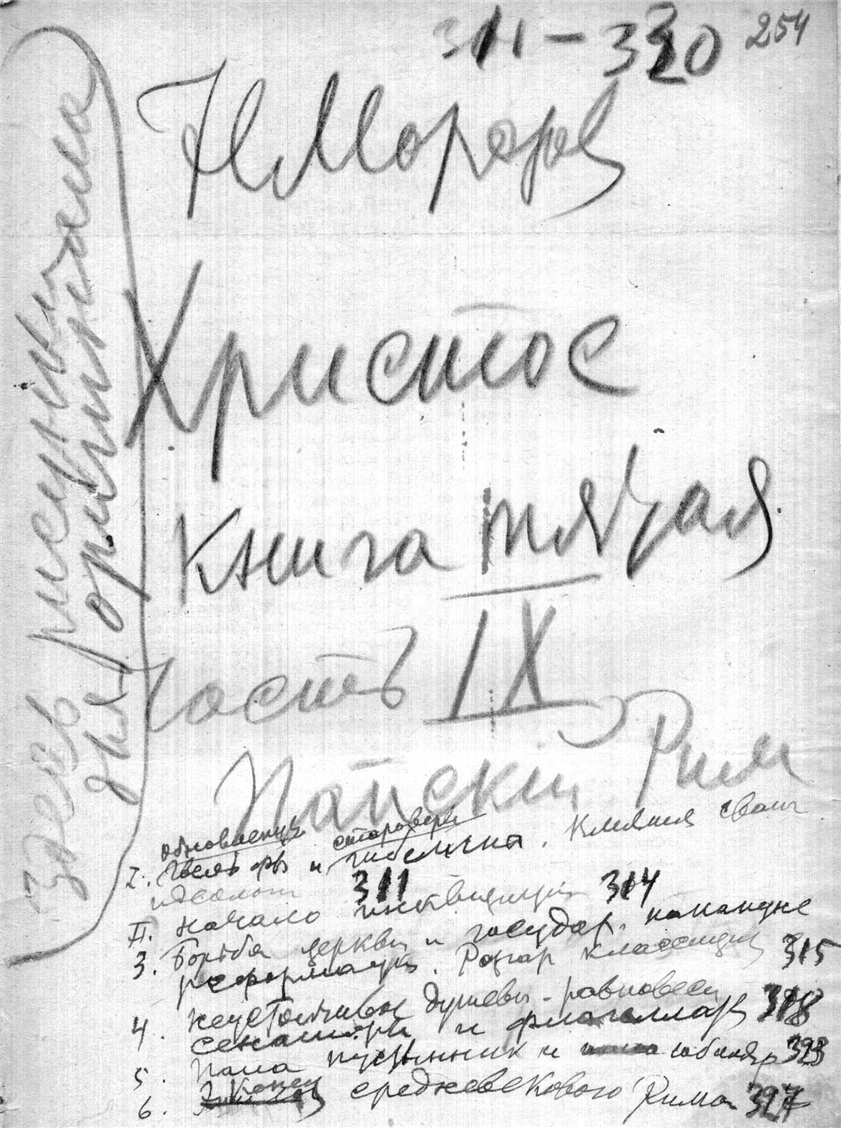 311-320 254
Н Морозов
Христос
Книга пятая
часть IX
Папский Рим
Здесь рисунки
для оригинала
обновленцы староверы
I. Гвельфы и гибелины. Клятия своих
311 314
II. Начало инквизиции
3. Борьба церкви и государ. накануне
реформации. Разгар классициз 315
4. неустойчивое душевн. равновеси
сенатори и флагеллат 318
5. папа пустынник и юбиляр 323
6. Конец средневекового Рима 327